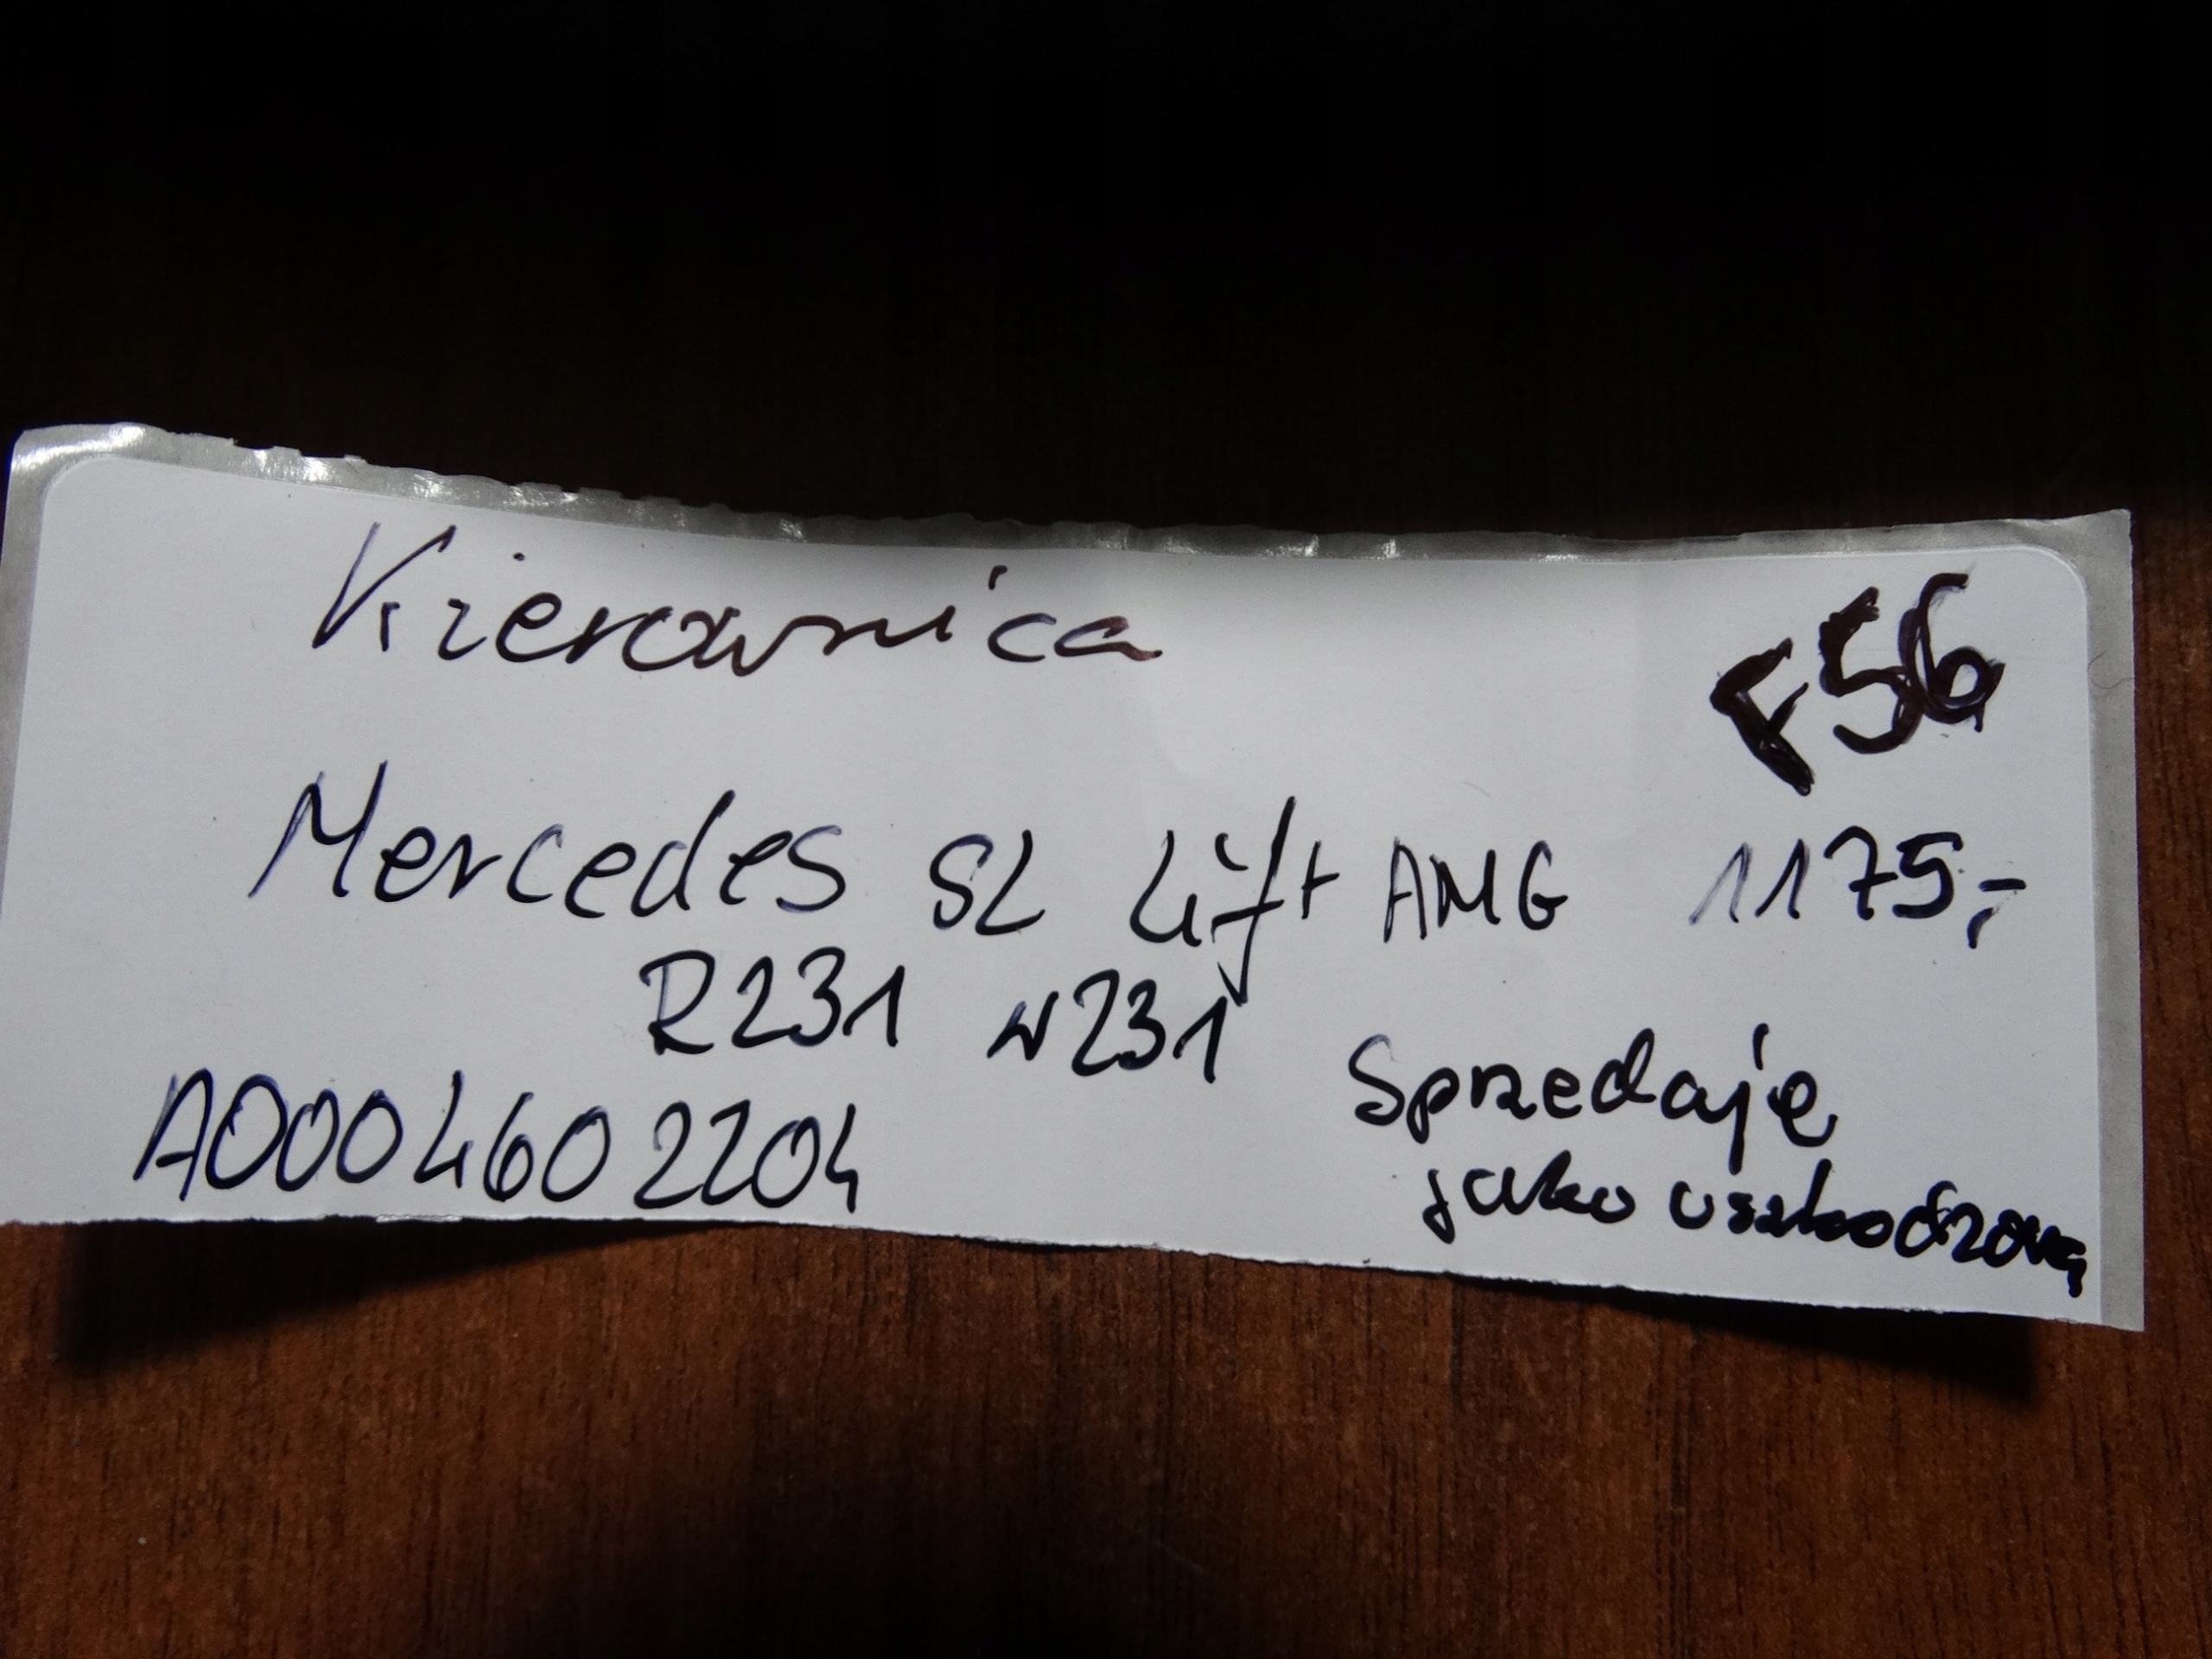 Kierownica
F56
Mercedes SL Lift AMG 1175,-
R231 w231
A0004602204
Sprzedaję
jako uszkodzoną